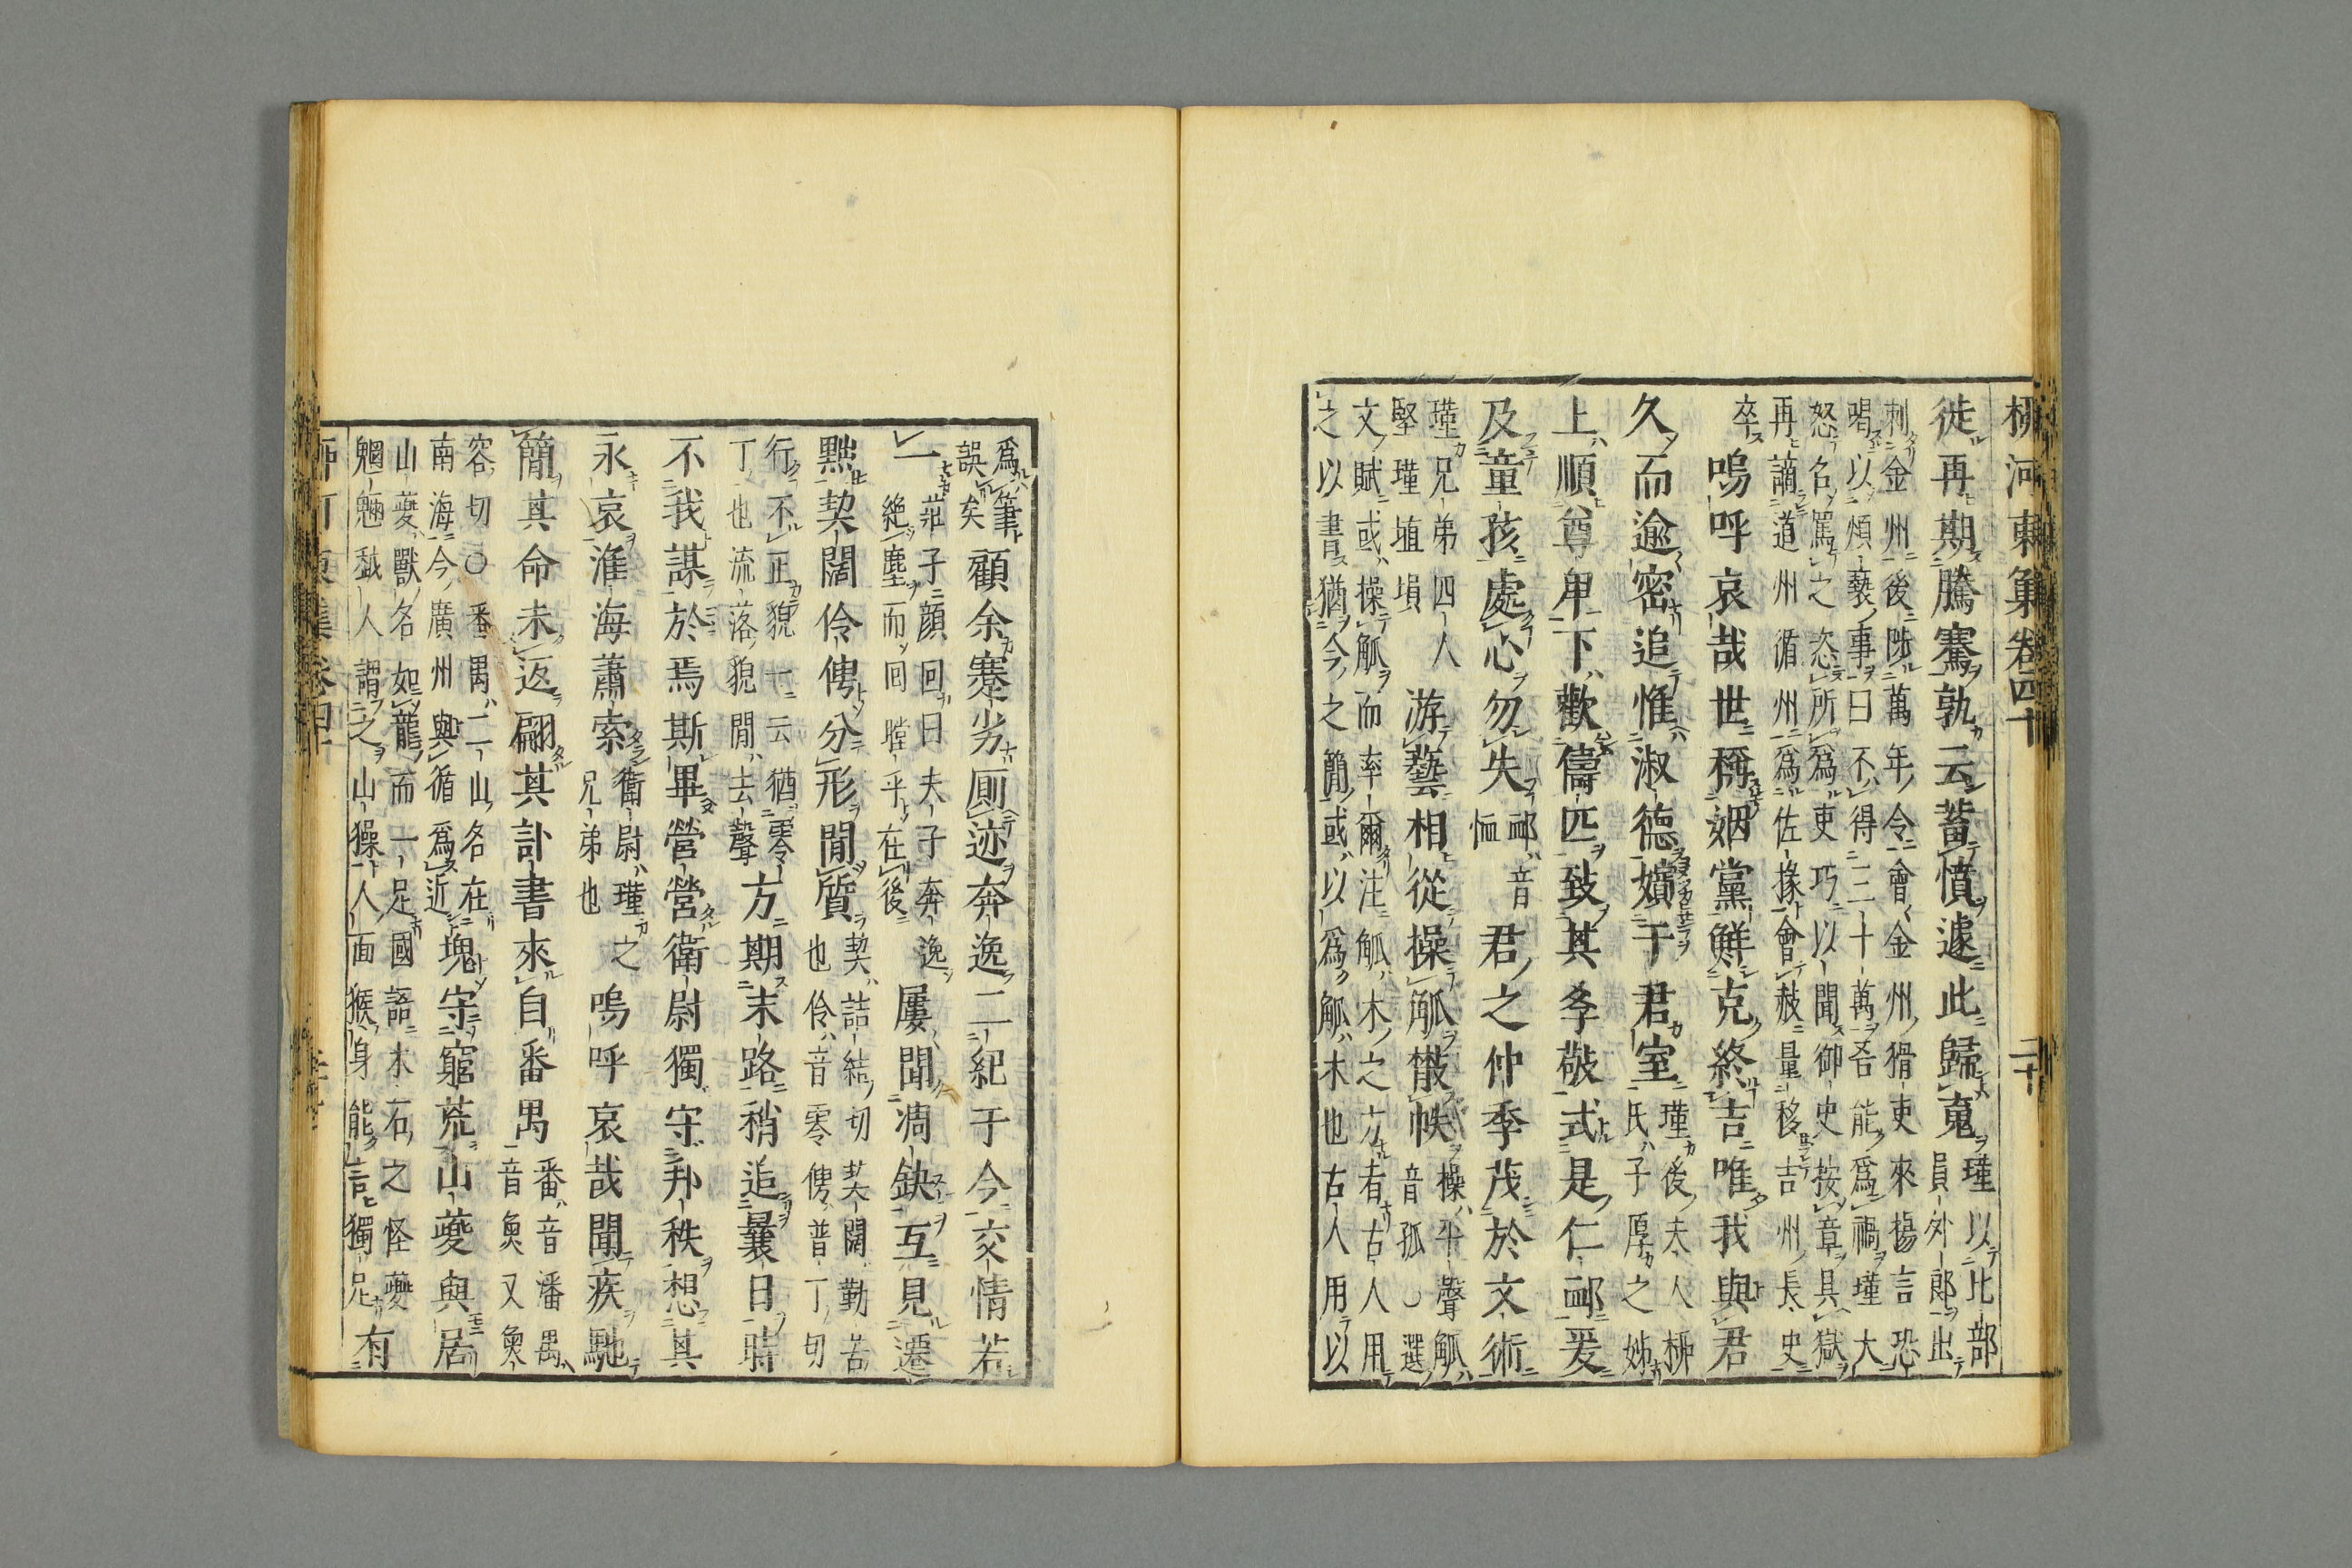 柳河東集卷四十 二十
徒再期騰騫孰云蓄憤遽此歸寃瑾以比部
員外郞出
刺金州後陟萬年令會金州猾吏來揚言恐
喝以煩䙝事曰不得三十萬吾能爲禍瑾大
怒召罵之恣所爲吏巧以聞御史按章具獄
再謫道州循州爲佐掾會赦量移吉州長史
卒嗚呼哀哉世稱姻黨鮮克終吉唯我與君
久而逾密追惟淑德嬪于君室瑾後夫人柳
氏子厚之姊
上順尊卑下歡儔匹致其孝敬式是仁卹爰
及童孩處心勿失卹音
恤君之仲季茂於文術
瑾兄弟四人
堅瑾埴塤游藝相從操觚㪚帙操平聲觚
音孤〇選
文賦或操觚而率爾注觚木之方者古人用
之以書猶今之簡或以爲觚木也古人用以
爲筆
誤矣顧余蹇劣厠迹奔逸二紀于今交情若
一莊子顔回曰夫子奔逸
絶塵而回瞠乎在後屢聞凋缺互見遷
黜契闊伶俜分形閒質契詰結切契闊勤苦
也伶音零俜普丁切
行不正貌一云猶零
丁也流落貌閒去聲方期末路稍追曩日時
不我謀於焉斯畢營營衛尉獨守邦秩想其
永哀淮海蕭索衛尉瑾之
兄弟也嗚呼哀哉聞疾馳
簡其命未返翩其訃書來自番禺番音潘禺
音魚又魚
容切〇番禺二山名在
南海今廣州與循爲近塊守窮荒山夔與居
山夔獸名如龍而一足國語木石之怪夔
魍魎䟐人謂之山獟人面猴身能言獨足有
柳河東集卷四十